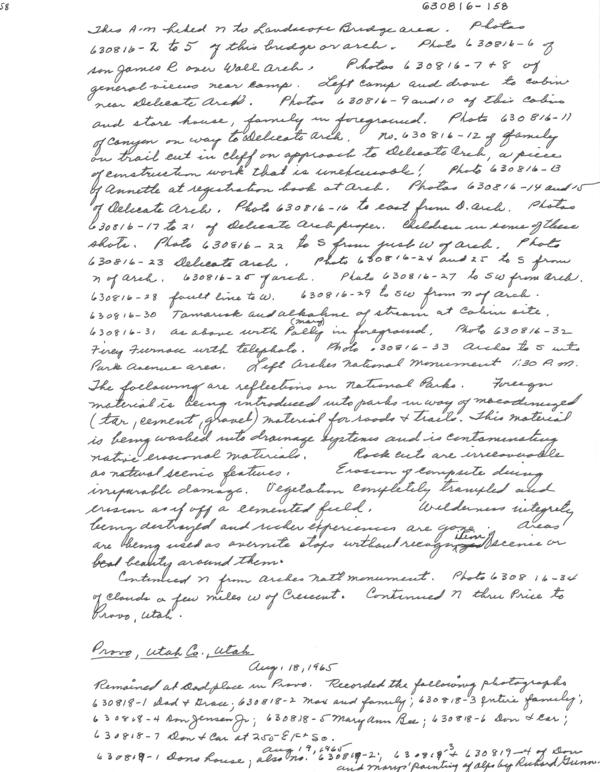 58
630816-158
This A.M hiked N to Landscape Bridge area. Photos
630816-2 to 5 of this bridge or arch. Photo 630816-6 of
son James R over Wall Arch. Photos 630816-7+8 of
general views near camp. Left camp and drove to cabin
near Delicate Arch. Photos 630816-9 and 10 of this cabin
and store house, family in foreground. Photo 630816-11
of canyon on way to Delicate Arch. No. 630816-12 of family
on trail cut in cliff on approach to Delicate Arch, a piece
of construction work that is unexcusable! Photo 630816-13
of Annette at registration book at Arch. Photos 630816-14 and 15
of Delicate Arch. Photo 630816-16 to east from D. arch. Photos
630816-17 to 21 of Delicate Arch proper. Children in some of these
shots. Photo 630816-22 to S from just W of arch. Photo
630816-23 Delicate arch. Photo 630816-24 and 25 to S from
N of arch. 630816-25 of arch. Photo 630816-27 to SW from arch.
630816-28 fault line to W. 630816-29 to SW from N of arch.
630816-30 Tamarisk and alkaline of stream at Cabin site.
630816-31 as above with Polly (Mary) in foreground. Photo 630816-32
Firey Furnace with telephoto. Photo 630816-33 Arches to S into
Park Avenue area. Left Arches National Monument 1:30 P.M.
The following are reflections on National Parks. Foreign
material is being introduced into parks in way of macadamized
(tar, cement, gravel) material for roads & trails. This material
is being washed into drainage systems and is contaminating
native erosional materials. Rock cuts are irrecoverable
as natural scenic features. Erosion of campsite doing
irreparable damage. Vegetation completely trampled and
erosion as if off a cemented field. Wilderness integrety
being destroyed and richer experiences are gone. Areas
are being used as overnite stops without recognition scenic or
beauty around them.
Continued N from Arches Natl monument. Photo 630816-34
of clouds a few miles W of Crescent. Continued N thru Price to
Provo, Utah.
Provo, Utah Co., Utah
Aug. 18, 1965
Remained at Dad place in Provo. Recorded the following photographs
630818-1 Dad & Grace; 630818-2 Max and family; 630818-3 entire family;
630818-4 Don Jensen Jr; 630818-5 Mary Ann Bee; 630818-6 Don & Car;
630818-7 Don & Car at 255 E 1st So.
Aug 19, 1965
630819-1 Dons house; also No. 630819-2; 630819-3 + 630819-4 of Don
and Marys' painting of alps by Richard Gunn.